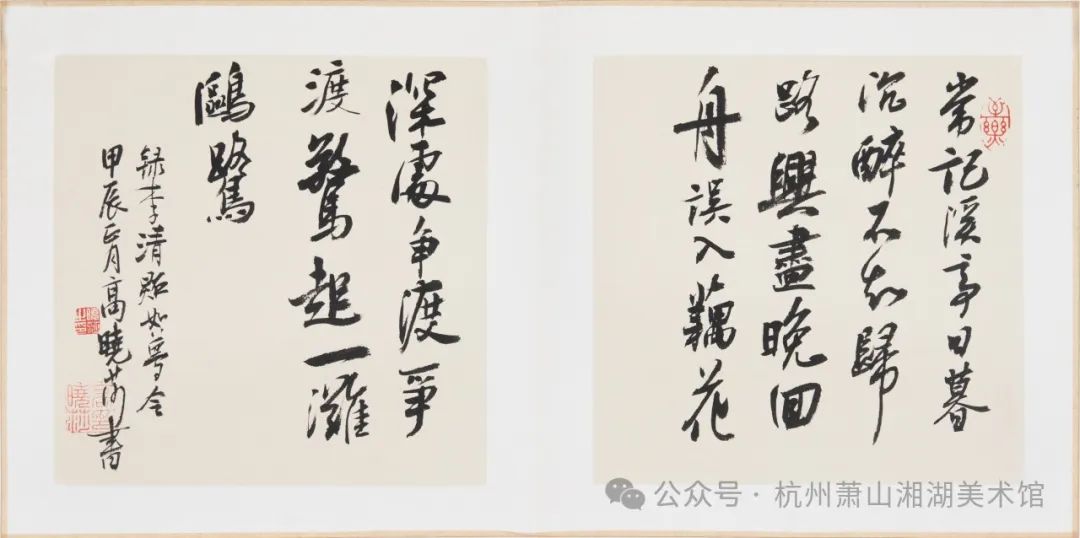 常记溪亭日暮
沉醉不知歸
路興盡晚回
舟误入藕花
深處争渡爭
渡驚起一灘
鷗鷺
録李清照如夢令
甲辰正月高曉書
公众号·杭州萧山湘湖美术馆